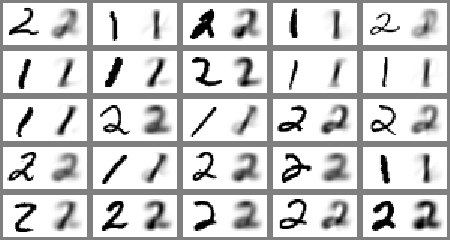 2 2 1 1 2 2 1 1 2
1 1 1 2 2 1 1 1 1
1 1 2 2 1 1 2 2 2 2
2 2 1 1 2 2 2 2 1 1
2 2 2 2 2 2 2 2 2